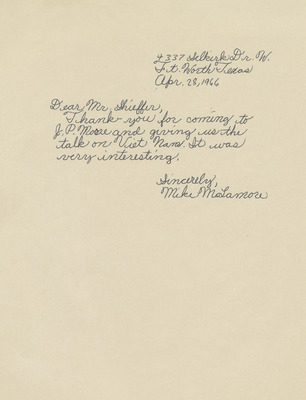 4337 Selkirk Dr. W.
Ft. Worth Texas
Apr. 28, 1966
Dear Mr. Shieffer,
Thank-you for coming to
J. P. Moore and giving us the
talk on Viet Nam. It was
very interesting.
Sincerely,
Mike McLamore